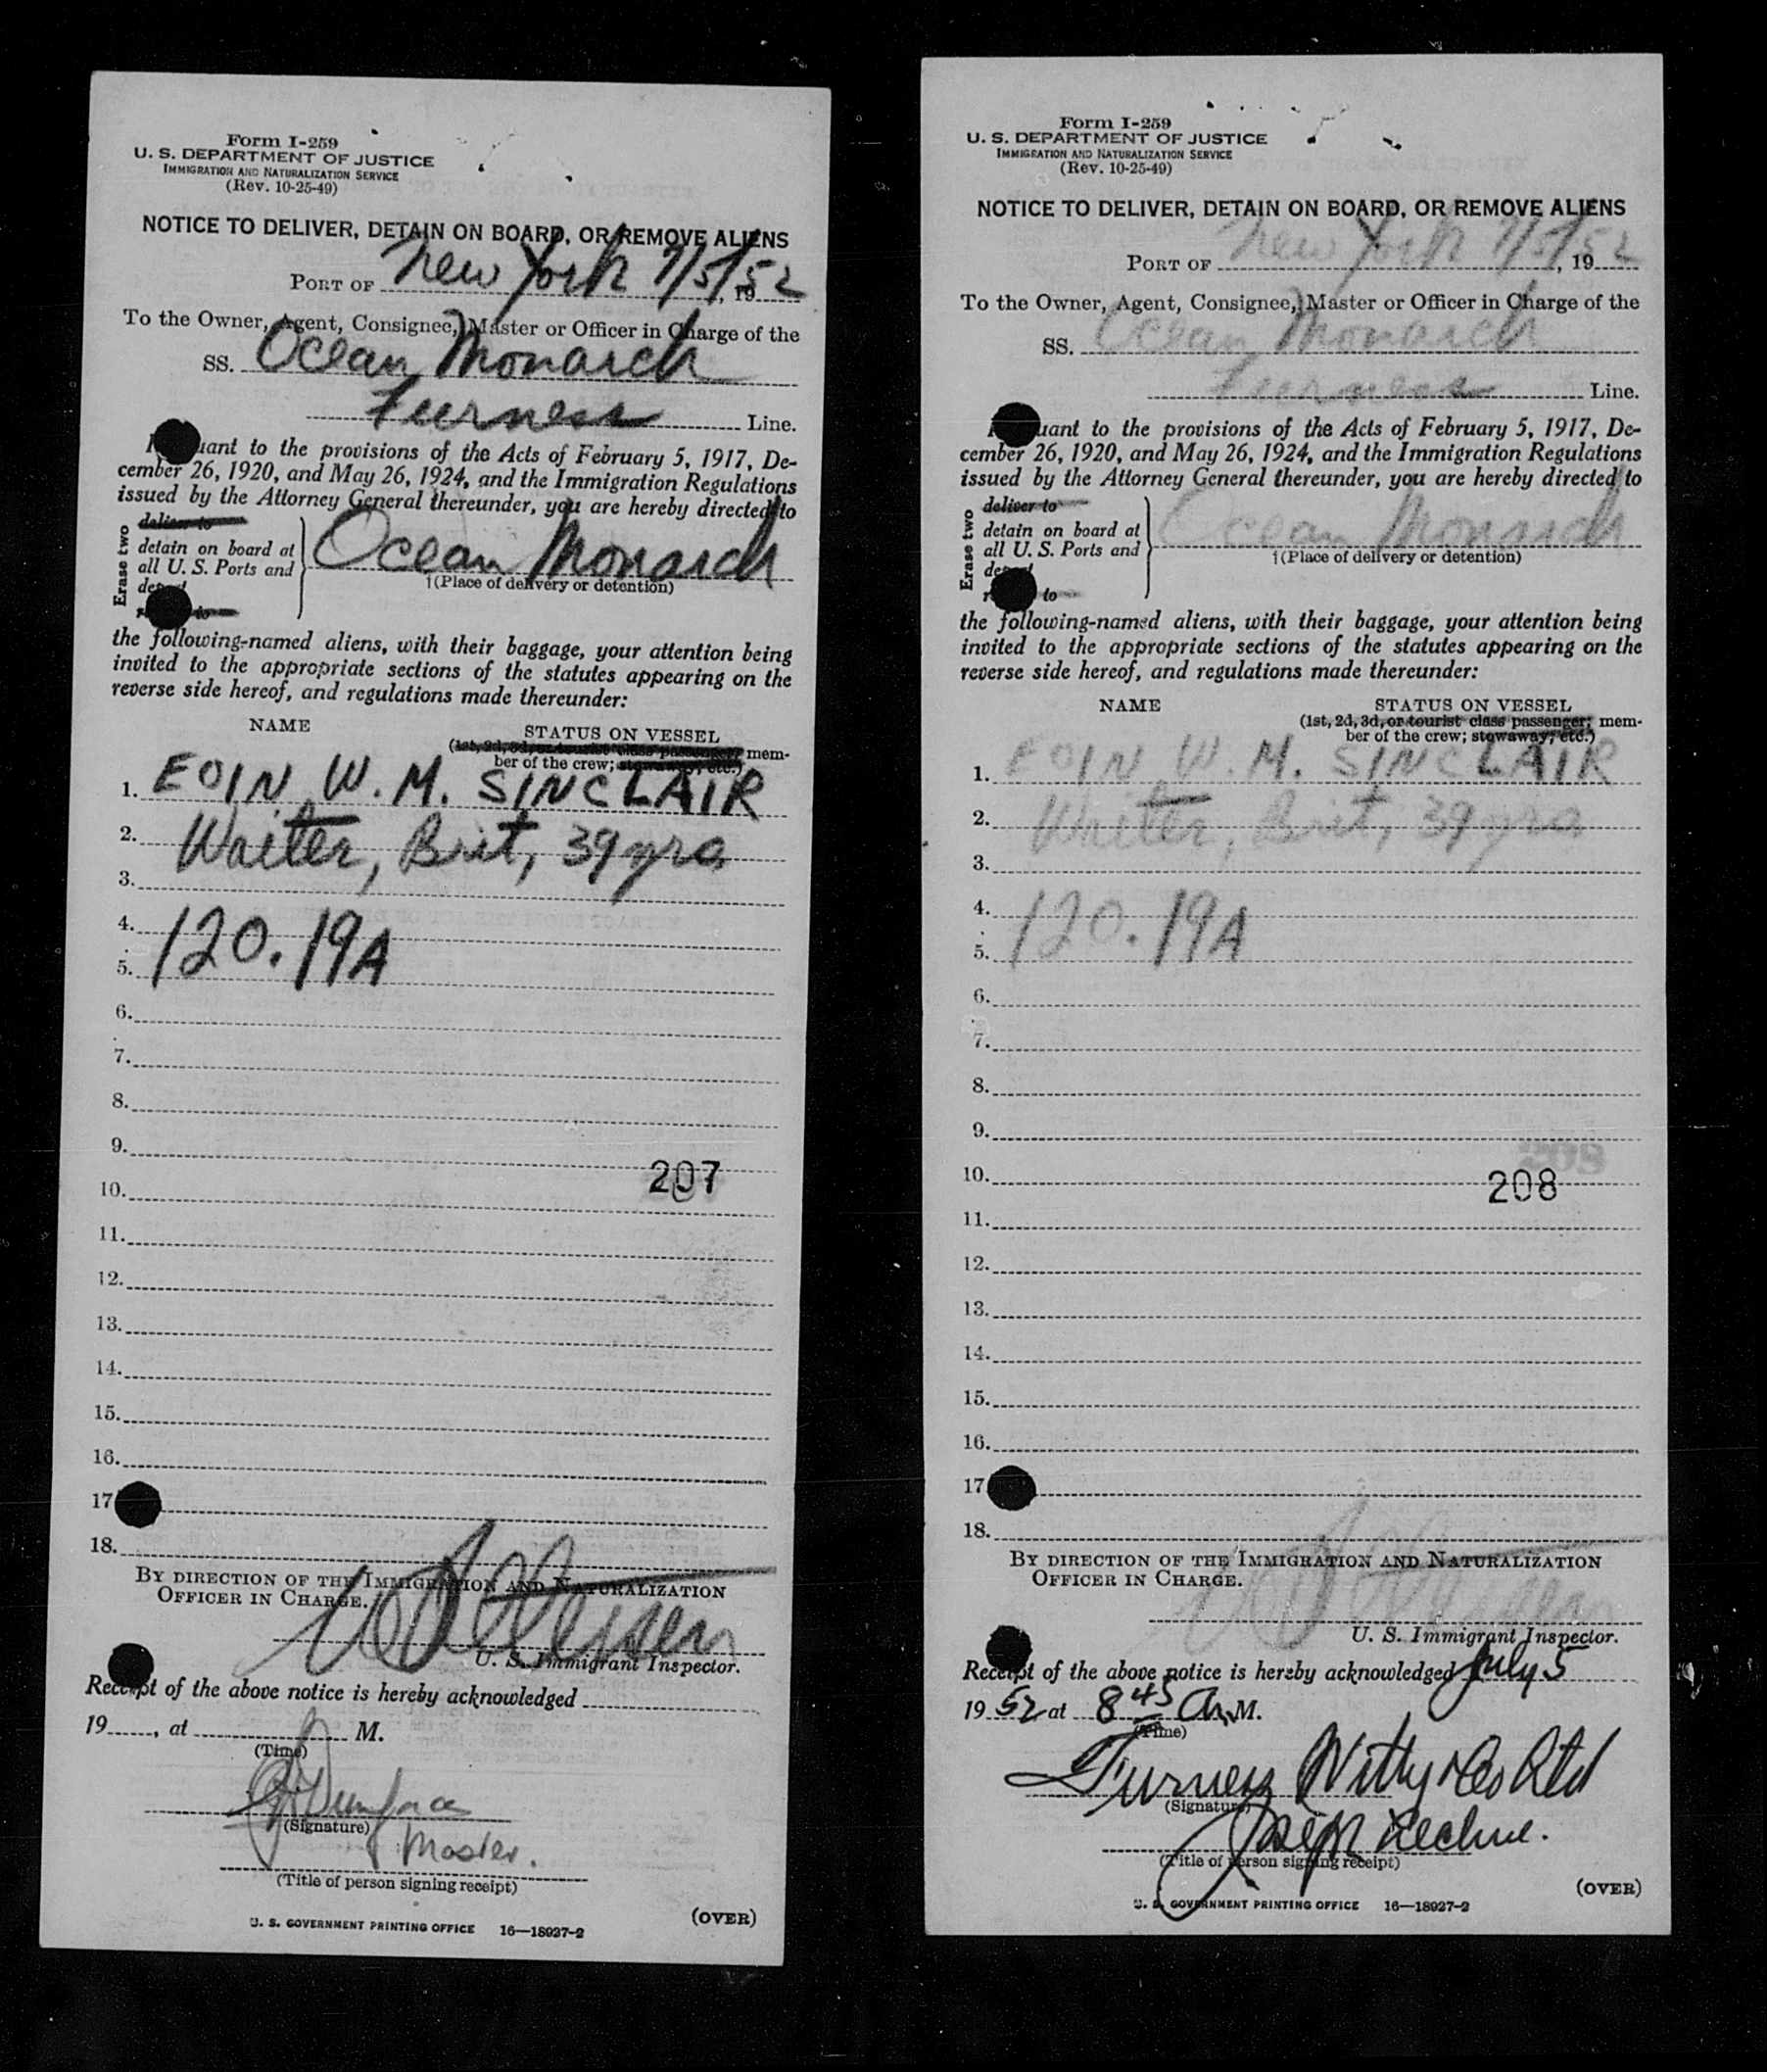 Form I-259
U. S. DEPARTMENT OF JUSTICE
IMMIGRATION AND NATURALIZATION SERVICE
(Rev. 10-25-49)
NOTICE TO DELIVER, DETAIN ON BOARD, OR REMOVE ALIENS
PORT OF New York 7/5/52, 19
To the Owner, Agent, Consignee, Master or Officer in Charge of the
SS. Ocean Monarch
Furness Line.
uant to the provisions of the Acts of February 5, 1917, De-
cember 26, 1920, and May 26, 1924, and the Immigration Regulations
issued by the Attorney General thereunder, you are hereby directed to
Erase two
deliver to
detain on board at
all U. S. Ports and
to
Ocean Monarch
†(Place of delivery or detention)
the following-named aliens, with their baggage, your attention being
invited to the appropriate sections of the statutes appearing on the
reverse side hereof, and regulations made thereunder:
NAME STATUS ON VESSEL
(1st, 2d, 3d, or tourist class passenger; mem-
ber of the crew; stowaway, etc.)
1. EOIN W. M. SINCLAIR
2. Waiter, Brit, 39 yrs
3.
4. 120.19A
5.
6.
7.
8.
9.
207
10.
11.
12.
13.
14.
15.
16.
17
18.
BY DIRECTION OF THE IMMIGRATION AND NATURALIZATION
OFFICER IN CHARGE.
U. S. Immigrant Inspector.
Receipt of the above notice is hereby acknowledged
19, at M.
(Time)
(Signature)
Master.
(Title of person signing receipt)
(OVER)
U. S. GOVERNMENT PRINTING OFFICE 16—18927-2
Form I-259
U. S. DEPARTMENT OF JUSTICE
IMMIGRATION AND NATURALIZATION SERVICE
(Rev. 10-25-49)
NOTICE TO DELIVER, DETAIN ON BOARD, OR REMOVE ALIENS
PORT OF New York 7/5/52, 19
To the Owner, Agent, Consignee, Master or Officer in Charge of the
SS. Ocean Monarch
Furness Line.
uant to the provisions of the Acts of February 5, 1917, De-
cember 26, 1920, and May 26, 1924, and the Immigration Regulations
issued by the Attorney General thereunder, you are hereby directed to
Erase two
deliver to
detain on board at
all U. S. Ports and
to
Ocean Monarch
†(Place of delivery or detention)
the following-named aliens, with their baggage, your attention being
invited to the appropriate sections of the statutes appearing on the
reverse side hereof, and regulations made thereunder:
NAME STATUS ON VESSEL
(1st, 2d, 3d, or tourist class passenger; mem-
ber of the crew; stowaway, etc.)
1. EOIN W. M. SINCLAIR
2. Waiter, Brit, 39 yrs
3.
4. 120.19A
5.
6.
7.
8.
9.
208
10. 208
11.
12.
13.
14.
15.
16.
17
18.
BY DIRECTION OF THE IMMIGRATION AND NATURALIZATION
OFFICER IN CHARGE.
U. S. Immigrant Inspector.
Receipt of the above notice is hereby acknowledged July 5
19 52 at 8 45 A.M.
(Time)
Furness Withy & Co Ltd
(Signature)
Joseph
(Title of person signing receipt)
(OVER)
U. S. GOVERNMENT PRINTING OFFICE 16—18927-2